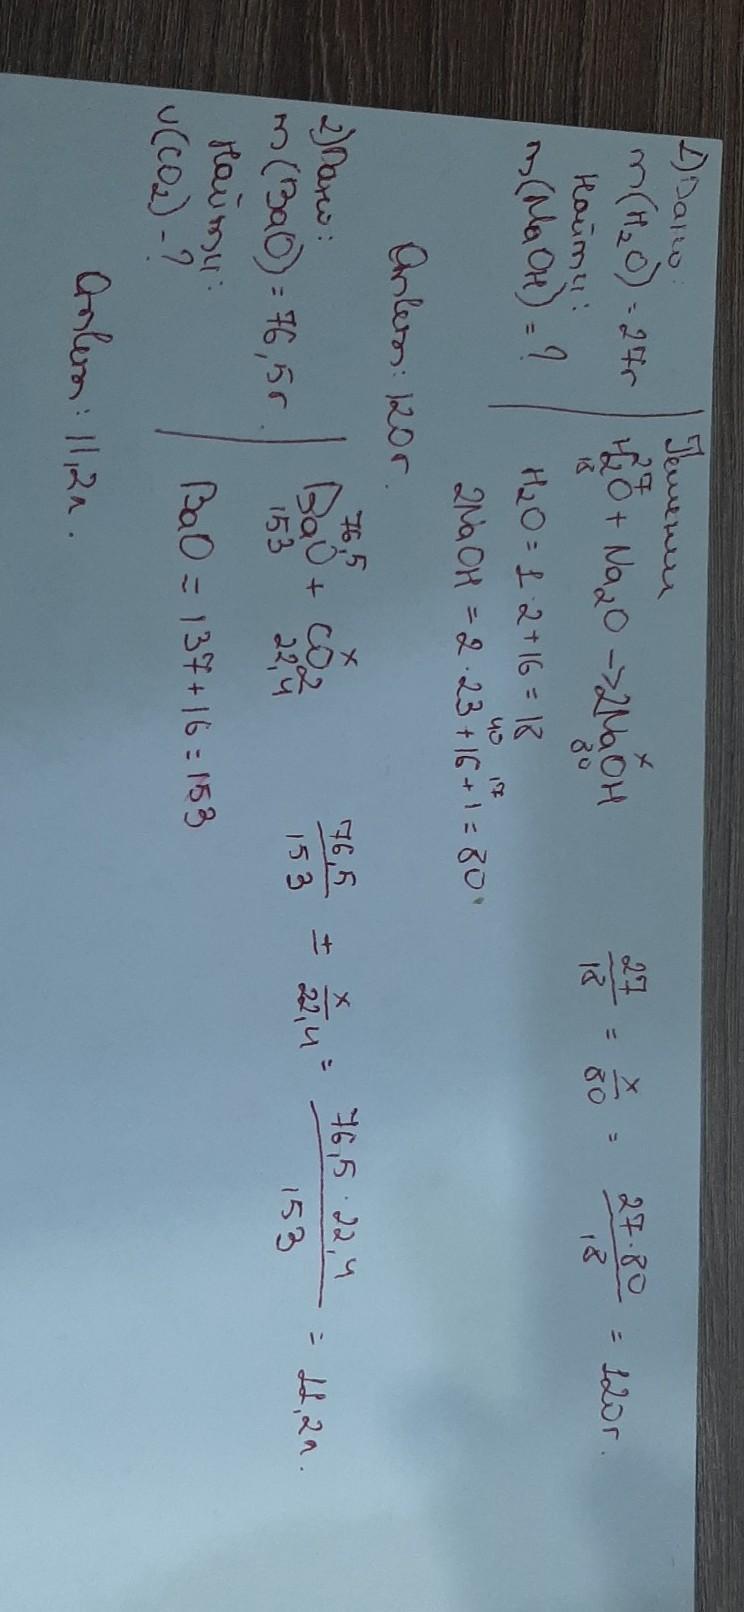 1) Дано:
m(H₂O) = 27г
Найти:
m(NaOH) = ?
Решение
27 x
H₂O + Na₂O -> 2NaOH
18 80
27/18 = x/80 = 27·80/18 = 120г.
H₂O = 1·2+16 = 18
40 17
2NaOH = 2·23+16+1 = 80.
Ответ: 120г.
2) Дано:
m(BaO) = 76,5г.
Найти:
υ(CO₂) - ?
76,5 x
BaO + CO₂
153 22,4
76,5/153 = x/22,4 = 76,5·22,4/153 = 11,2л.
BaO = 137+16 = 153
Ответ: 11,2л.